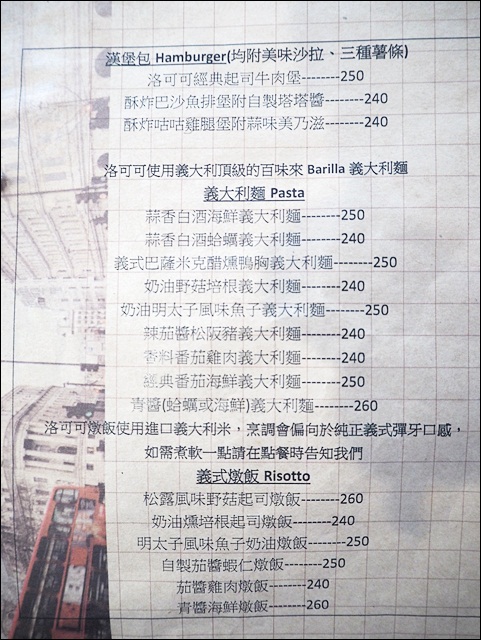 漢堡包 Hamburger(均附美味沙拉、三種薯條)
洛可可經典起司牛肉堡--------250
酥炸巴沙魚排堡附自製塔塔醬--------240
酥炸咕咕雞腿堡附蒜味美乃滋--------240
洛可可使用義大利頂級的百味來 Barilla 義大利麵
義大利麵 Pasta
蒜香白酒海鮮義大利麵--------250
蒜香白酒蛤蠣義大利麵--------240
義式巴薩米克醋燻鴨胸義大利麵--------250
奶油野菇培根義大利麵--------240
奶油明太子風味魚子義大利麵--------250
辣茄醬松阪豬義大利麵--------240
香料番茄雞肉義大利麵--------240
經典番茄海鮮義大利麵--------250
青醬(蛤蠣或海鮮)義大利麵--------260
洛可可燉飯使用進口義大利米，烹調會偏向於純正義式彈牙口感，
如需煮軟一點請在點餐時告知我們
義式燉飯 Risotto
松露風味野菇起司燉飯--------260
奶油燻培根起司燉飯--------240
明太子風味魚子奶油燉飯--------250
自製茄醬蝦仁燉飯--------250
茄醬雞肉燉飯--------240
青醬海鮮燉飯--------260